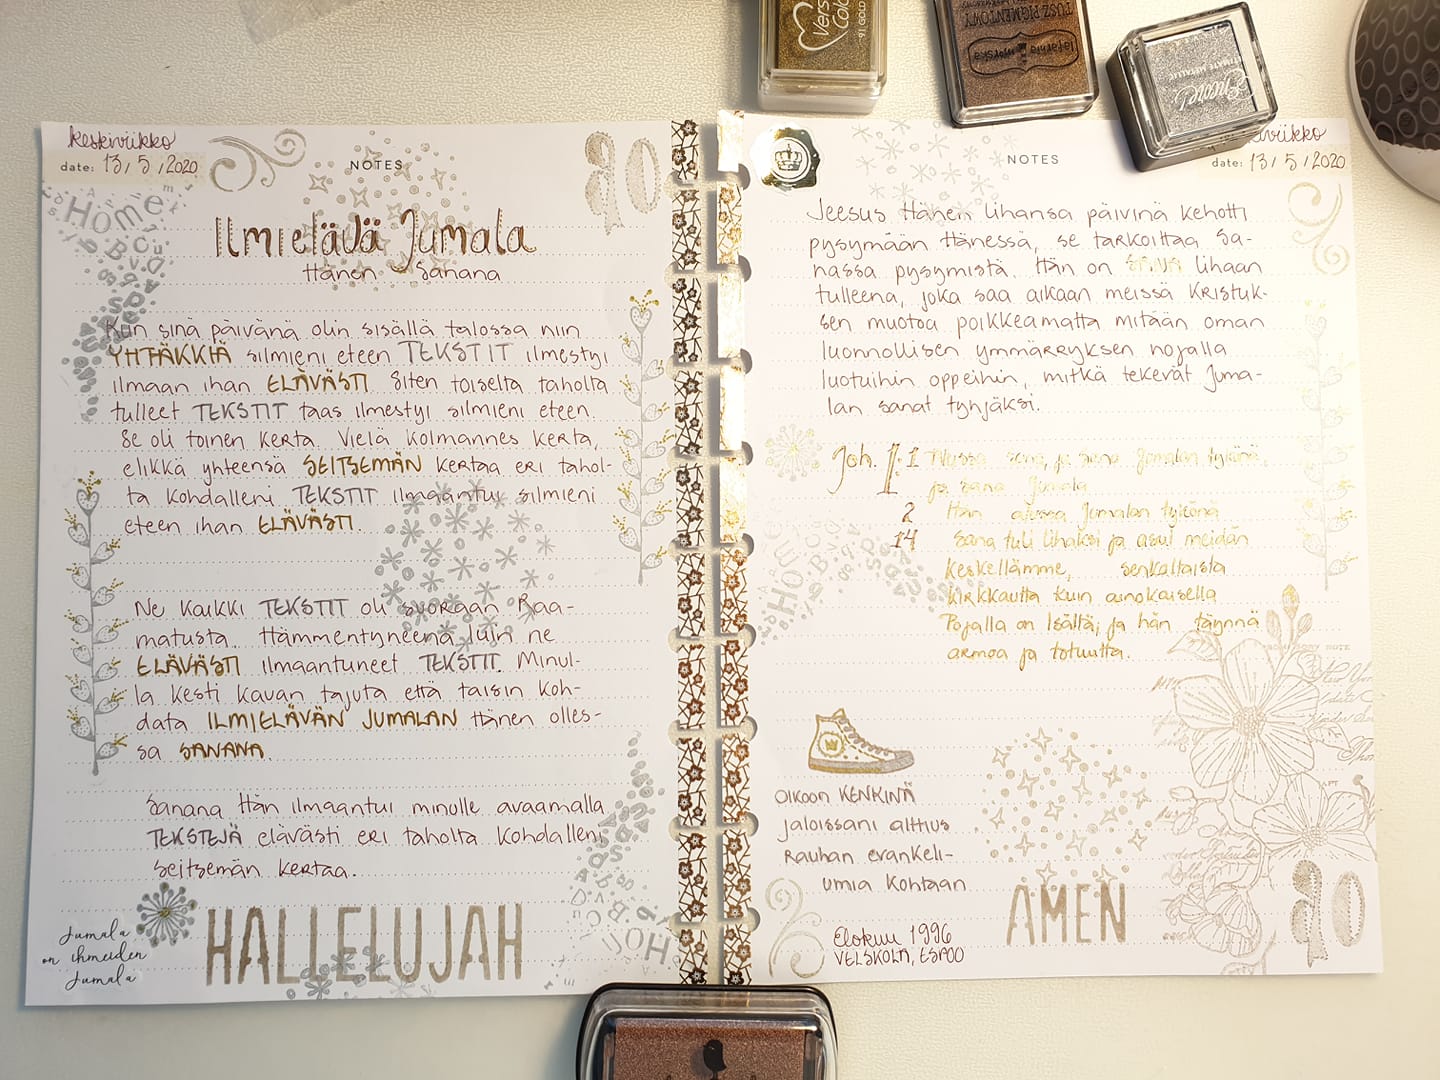 Versa
Color
91 GOLD
TUSZ PIGMENTOWY
lafarnia
morska
Encore!
ULTIMATE METALLIC
keskiviikko
date: 13 / 5 / 2020
NOTES
Home
20
Ilmielävä Jumala
Hänen Sanana
Kun sinä päivänä olin sisällä talossa niin
YHTÄKKIÄ silmieni eteen TEKSTIT ilmestyi
ilmaan ihan ELÄVÄSTI. Siten toiselta taholta
tulleet TEKSTIT taas ilmestyi silmieni eteen.
Se oli toinen kerta. Vielä kolmannes kerta,
elikkä yhteensä SEITSEMÄN kertaa eri tahol-
ta kohdalleni TEKSTIT ilmaantui silmieni
eteen ihan ELÄVÄSTI.
Ne kaikki TEKSTIT oli suoraan Raa-
matusta. Hämmentyneenä luin ne
ELÄVÄSTI ilmaantuneet TEKSTIT. Minul-
la kesti kavan tajuta että taisin koh-
data ILMIELÄVÄN JUMALAN Hänen olles-
sa SANANA.
Sanana Hän ilmaantui minulle avaamalla
TEKSTEJÄ elävästi eri taholta kohdalleni
seitsemän kertaa.
Jumala
on ihmeiden
Jumala
HALLELUJAH
Home
NOTES
date: 13 / 5 / 2020
Jeesus Hänen lihansa päivinä kehotti
pysymään Hänessä, se tarkoittaa Sa-
nassa pysymistä. Hän on SANA lihaan
tulleena, joka saa aikaan meissä Kristuk-
sen muotoa poikkeamatta mitään oman
luonnollisen ymmärryksen nojalla
luotuihin oppeihin, mitkä tekevät Juma-
lan sanat tyhjäksi.
Joh. 1:1 sana, ja sana Jumalan tykönä,
ja sana Jumala
2 Hän alussa Jumalan tykönä
14 Sana tuli lihaksi ja asui meidän
keskellämme, senkaltaista
kirkkautta kuin ainokaisella
Pojalla on Isältä; ja hän täynnä
armoa ja totuutta.
Home
Olkoon KENKINÄ
jaloissani alttius
Rauhan evankeli-
umia kohtaan
AMEN
20
Elokuu 1996
VELSKOLA, ESPOO